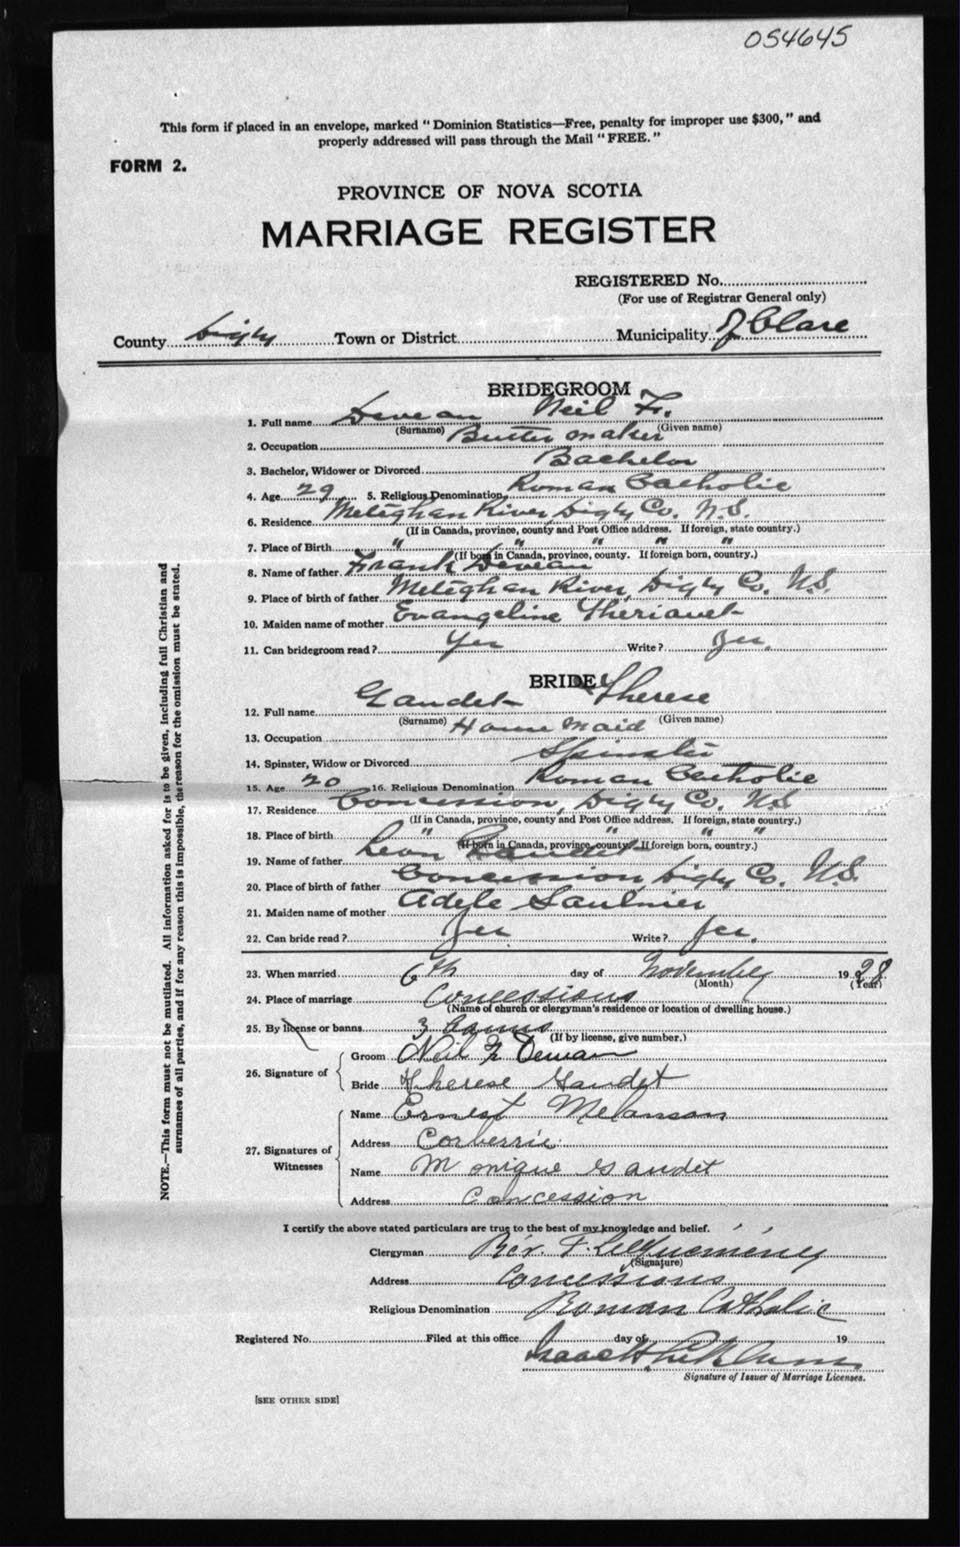 054645
This form if placed in an envelope, marked "Dominion Statistics—Free, penalty for improper use $300," and
properly addressed will pass through the Mail "FREE."
FORM 2.
PROVINCE OF NOVA SCOTIA
MARRIAGE REGISTER
REGISTERED No.
(For use of Registrar General only)
County Digby Town or District Municipality of Clare
BRIDEGROOM
1. Full name Deveau Neil Fr.
(Surname) (Given name)
2. Occupation Butter maker
3. Bachelor, Widower or Divorced Bachelor
4. Age 29 5. Religious Denomination Roman Catholic
6. Residence Meteghan River, Digby Co. N.S.
(If in Canada, province, county and Post Office address. If foreign, state country.)
7. Place of Birth " " " " "
(If born in Canada, province, county. If foreign born, country.)
8. Name of father Frank Deveau
9. Place of birth of father Meteghan River, Digby Co. N.S.
10. Maiden name of mother Evangeline Theriault
11. Can bridegroom read? Yes Write? Yes.
BRIDE
12. Full name Gaudet Therese
(Surname) (Given name)
13. Occupation House Maid
14. Spinster, Widow or Divorced Spinster
15. Age 20 16. Religious Denomination Roman Catholic
17. Residence Concession, Digby Co. N.S
(If in Canada, province, county and Post Office address. If foreign, state country.)
18. Place of birth " " " "
(If born in Canada, province, county. If foreign born, country.)
19. Name of father Leon Gaudet
20. Place of birth of father Concession, Digby Co. N.S.
21. Maiden name of mother Adele Saulnier
22. Can bride read? Yes Write? Yes.
23. When married 6th day of November 1928
(Month) (Year)
24. Place of marriage Concessions
(Name of church or clergyman's residence or location of dwelling house.)
25. By license or banns 3 banns
(If by license, give number.)
26. Signature of Groom Neil Fr Deveau
Bride Therese Gaudet
27. Signatures of Witnesses Name Ernest Melanson
Address Corberrie
Name Monique Gaudet
Address Concession
I certify the above stated particulars are true to the best of my knowledge and belief.
Clergyman Rév. F. LeQuéméner
(Signature)
Address Concessions
Religious Denomination Roman Catholic
Registered No. Filed at this office day of 19
Isaac H.
Signature of Issuer of Marriage Licenses.
[SEE OTHER SIDE]
NOTE.—This form must not be mutilated. All information asked for is to be given, including full Christian and
surnames of all parties, and if for any reason this is impossible, the reason for the omission must be stated.